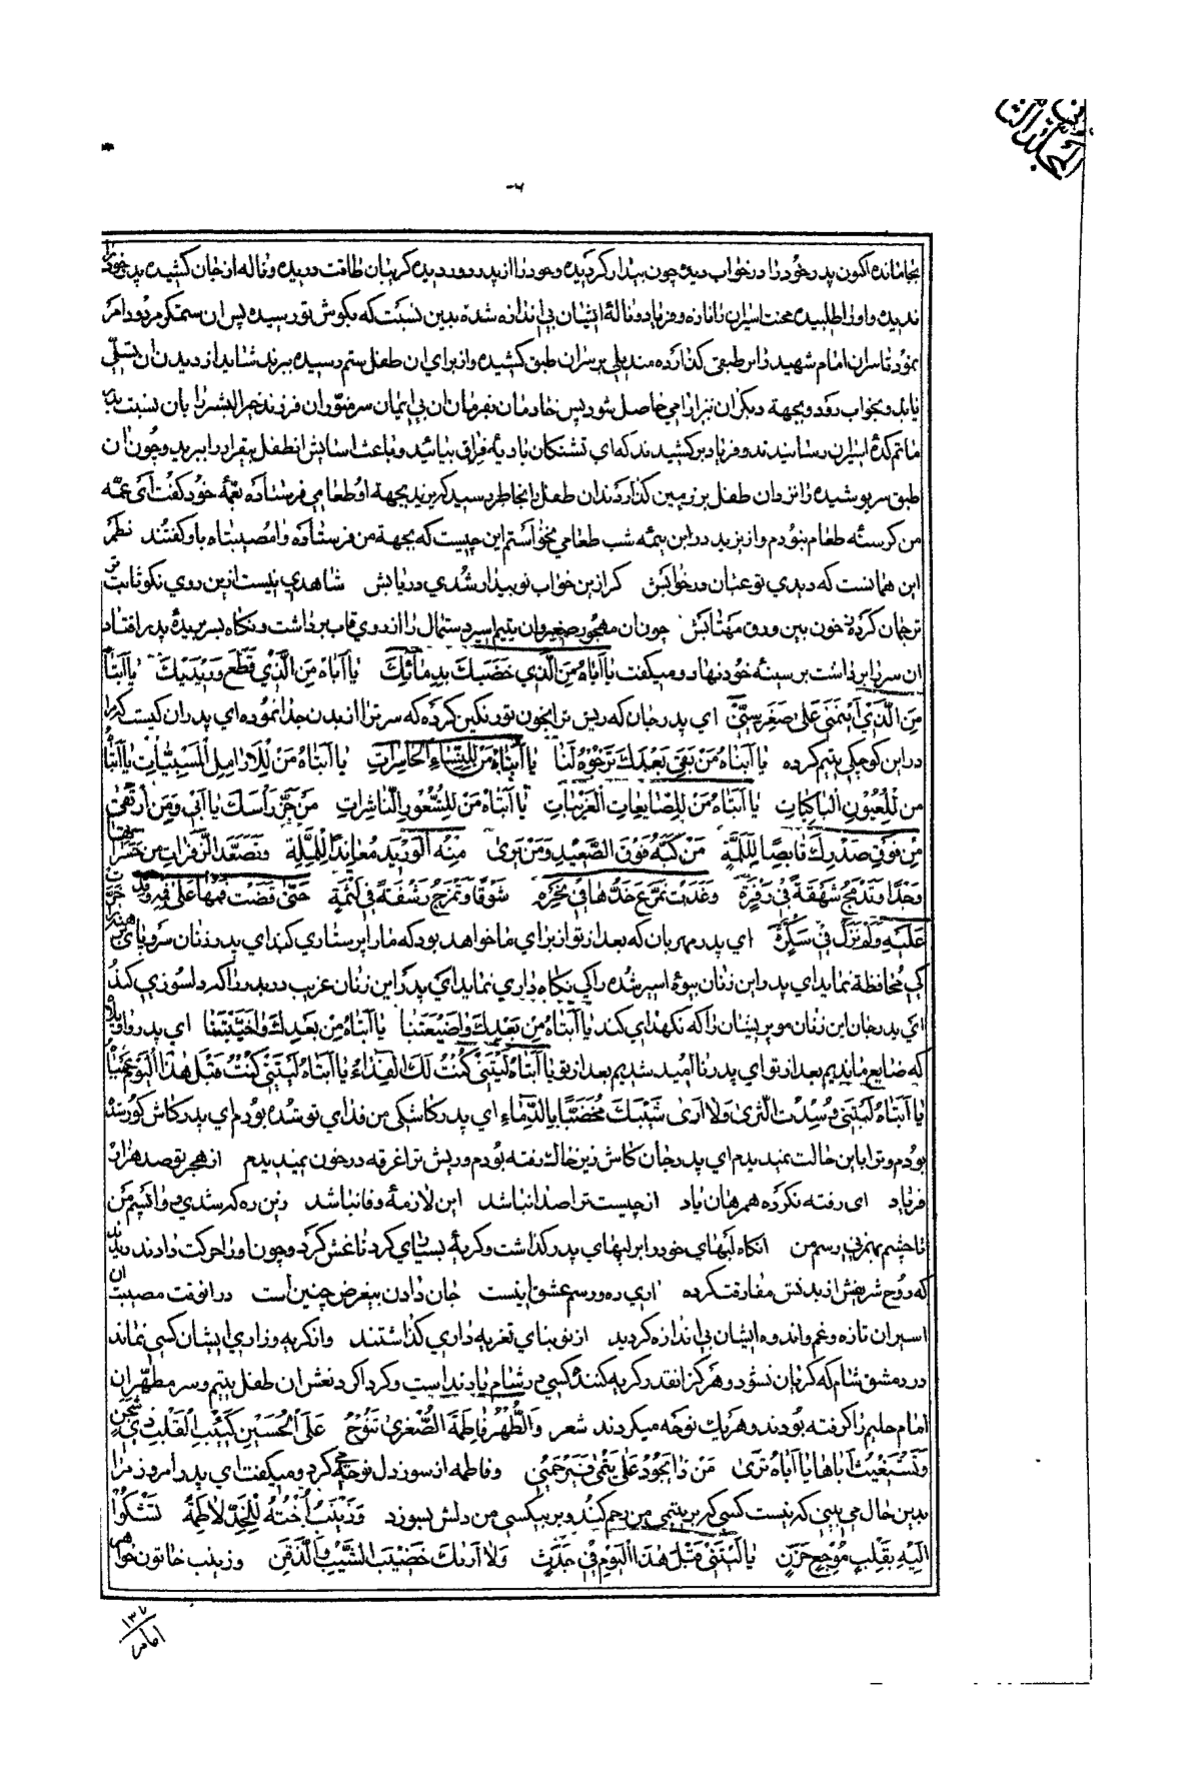 المجلد الثا
بجا مانده اکنون پدر خود را در خواب دیده چون بیدار گردیده و خود را از پدر دور دیده گریبان طاقت دریده و ناله از جان کشیده پدر خود را
ندیده و او را طلبیده محنت اسیران را تازه و فریاد و نالهٔ ایشان بی اندازه شده بدین نسبت که بگوش تو رسیده پس ان ستمگر مردود امر
نمود تا سر ان امام شهید را بر طبقی گذارده مندیلی بر سر ان طبق کشیده و از برای ان طفل ستم رسیده ببرند شاید از دیدن ان تسلی
یابد و بخواب رود و بجهة دیگران نیز ارامی حاصل شود پس خادمان بفرمان ان بی ایمان سر منور ان فرزند خیر البشر را بان نسبت بدر
ماتم کدهٔ اسیران رسانیدند و فریاد بر کشیدند که ای تشنگان بادیهٔ فراق بیائید و باعث اسایش انطفل بیقرار را ببرید و چون ان
طبق سر پوشیده را نزد ان طفل بر زمین گذاردند ان طفل را بخاطر رسید که یزید بجهة او طعامی فرستاده بعمهٔ خود گفت ای عمه
من گرسنهٔ طعام نبودم و از یزید در این نیمهٔ شب طعامی نخواستم این چیست که بجهة من فرستاده وا مصیبتاه باو گفتند نظم
این همانست که دیدی تو عیان در خوابش گر ازین خواب تو بیدار شدی دریابش شاهدی نیست ازین روی نکو ثابت تر
ترجمان کرده خون بین ورق مهتابش چون ان مهجور صغیر و ان یتیم اسیر دستمال را از روی قاب برداشت و نگاه بسر بریدهٔ پدر افتاد
ان سر را برداشت بر سینهٔ خود نهاد و میگفت یا أباه من الذي خضبك بدمائك یا أباه من الذي قطع وریدیك یا أبتا
من الذي أیتمنی علی صغر سنی ای پدر جان که ریش ترا بخون تو رنگین کرده که سر ترا از بدن جدا نموده ای پدر ان کیست که مرا
در این کوچکی یتیم کرده یا أبتاه من بقی بعدك نرجوه لنا یا أبتاه من للنساء الحاسرات یا أبتاه من للارامل المسبیات یا أبتا
من للعیون الباکیات یا أبتاه من للضایعات الغریبات یا أبتاه من للشعور الناشرات من حز رأسك یا أبی ومن ارتقی
من فوق صدرك قابضا للمة من کبه فوق الصعید ومن بری منه الورید معاندا للملة وتصعد الزفرات من حسراتها
وجدا وتدمج شهقة فی زفرة وغدت تمرغ خدها فی نحره شوقا وتمزج رشفة فی لثمة حتی قضت فمها علی فیه وقد حزن
علیه ولم تزل فی سکرة ای پدر مهربان که بعد از تو از برای ما خواهد بود که ما را پرستاری کند ای پدر زنان سر و پای برهنه را
کی محافظة نماید ای پدر این زنان بیوهٔ اسیر شده را کی نگاه داری نماید ای پدر این زنان غریب در بدر را که دلسوزی کند
ای پدر جان این زنان مو پریشان را که نگهداری کند یا أبتاه من بعدك واضیعتنا یا أبتاه من بعدك واخیبتنا ای پدر واویلاه
که ضایع ماندیم بعد از تو ای پدر نا امید شدیم بعد از تو یا أبتاه لیتنی کنت لك الفداء یا أبتاه لیتنی کنت قبل هذا الیوم عمیا
یا أبتاه لیتنی وسدت الثری ولا أری شیبك مخضبا بالدماء ای پدر کاشکی من فدای تو شده بودم ای پدر کاش کور شده
بودم و ترا باین حالت نمیدیدم ای پدر جان کاش زیر خاك رفته بودم و ریش ترا غرقه در خون نمیدیدم از هجر تو صد هزار
فریاد ای رفته نکرده همرهان یاد از چیست ترا صدا نباشد این لازمهٔ وفا نباشد زین ره که شدی واپسم من
تا چشم بهم زنی رسم من انگاه لبهای خود را بر لبهای پدر گذاشت و گریهٔ بسیاری کرد تا غش کرد و چون او را حرکت دادند دیدند
که روح شریفش از بدنش مفارقت کرده اری ره و رسم عشق اینست جان دادن بیغرض چنین است در انوقت مصیبت ان
اسیران تازه و غم و اندوه ایشان بی اندازه گردید از نو بنای تعزیه داری گذاشتند و از گریه و زاری ایشان کسی نماند
در دمشق شام که گریان نشود و هرگز انقدر گریه کننده کسی در شام یاد نداشت و گرداگرد نعش ان طفل یتیم و سر مطهر ان
امام حلیم را گرفته بودند و هر یك نوحه میکردند شعر والطهر فاطمة الصغری تنوح علی الحسین کئیب القلب ذي شجن
وتستغیث أباها یا أباه تری من ذا یجود علی یتمی فیرحمنی و فاطمه از سوز دل نوحه می کرد و میگفت ای پدر امروز مرا
بدین حال می بینی که نیست کسی که بر یتیمی من رحم کند و بر بیکسی من دلش بسوزد وزینب أخته للخد لاطمة تشکوا
الیه بقلب موجع حزن یا لیتنی قبل هذا الیوم فی جدث ولا أرٮك خضیب الشیب والذقن و زینب خاتون خواهر